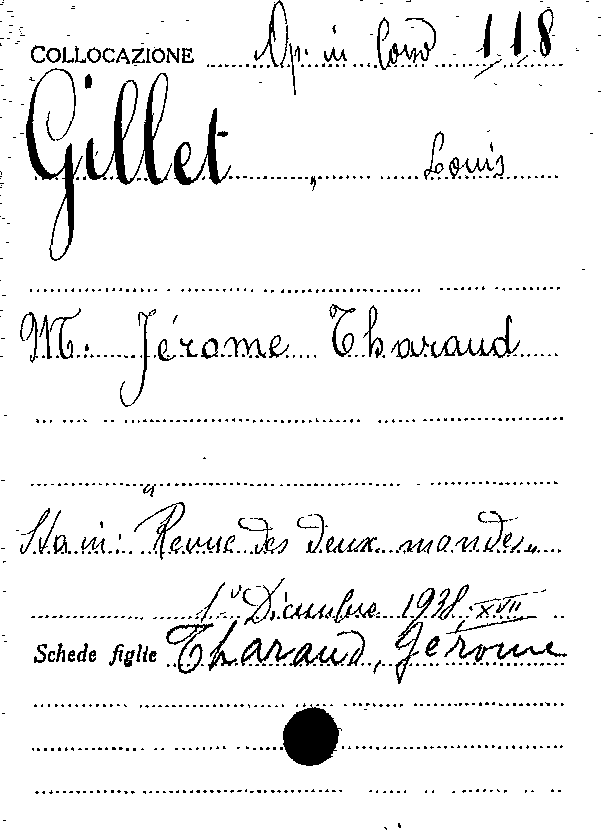 COLLOCAZIONE Op. in Cons 118
Gillet, Louis
M. Jérome Tharaud
Sta in: "Revue des deux mondes"
1º Dicembre 1938, XVII
Schede figlie Tharaud, Jérome